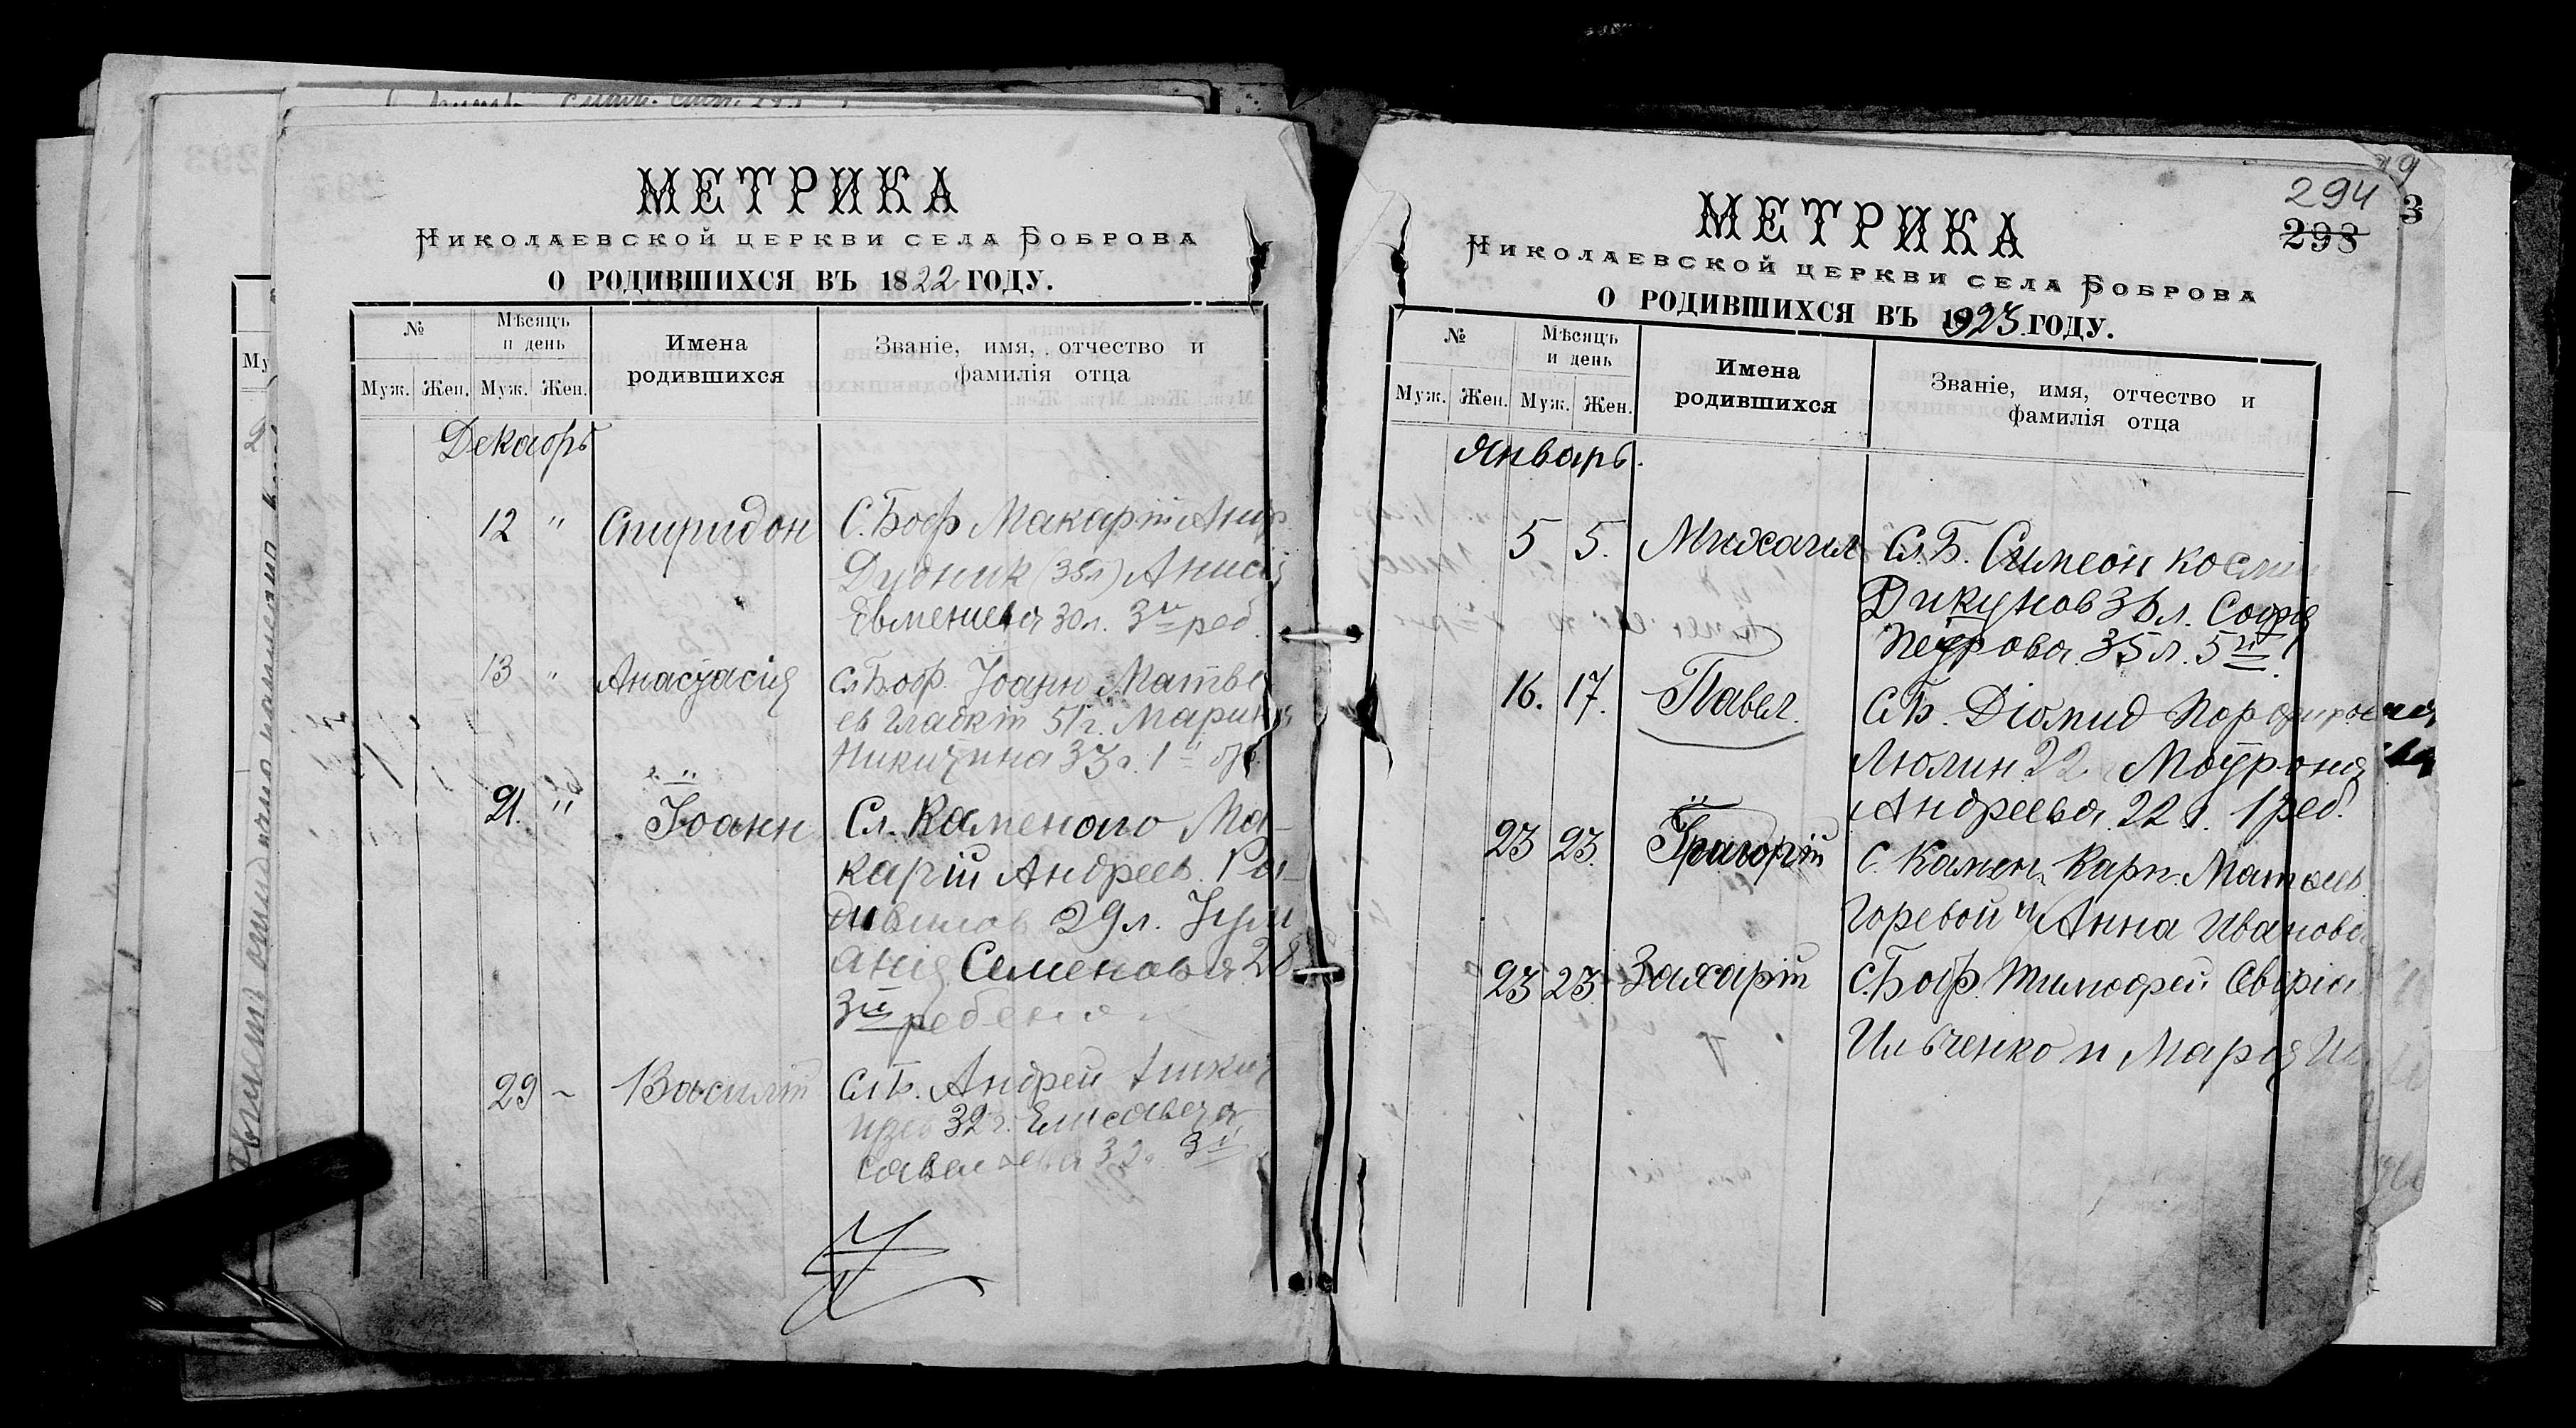 МЕТРИКА
Николаевской церкви села Боброва
О РОДИВШИХСЯ ВЪ 1822 ГОДУ.
№
Мѣсяцъ и день
Имена родившихся
Званіе, имя, отчество и фамилія отца
Муж. Жен. Муж. Жен.
Декабрь
12 " Спиридон С. Бобр Макарій
Дудник (35л) Анисія
Евмениева 30л. 3й реб.
13 " Анастасія Сл Бобр. Іоанн Матве
ев Гладкій 51г. Марина
Никитина 33г. 1й
21. " Іоанн Сл. Каменого Ма-
карій Андреев.
29 л.
Семенова 28
3й ребенок
29 ~ Василій Сл Б. Андрей
32 г. Елисавета
Савельева 32. 3й
294
293
МЕТРИКА
Николаевской церкви села Боброва
О РОДИВШИХСЯ ВЪ 1923 ГОДУ.
№
Мѣсяцъ и день
Имена родившихся
Званіе, имя, отчество и фамилія отца
Муж. Жен. Муж. Жен.
Январь.
5 5. Михаил Сл. Б. Симеон Косми
Дикунов 36л. Софія
Петрова 35л. 5й
16. 17. Павел. Сл Б. Діомид Порфирове
Люлин 22 Матрона
Андреева 22 г. 1 реб.
23 23. Григорій С. Камен. Карп. Матвеев
Горевой и Анна Иванова
23 23 Захарій С. Бобр. Тимофей
Ильченко и Марія